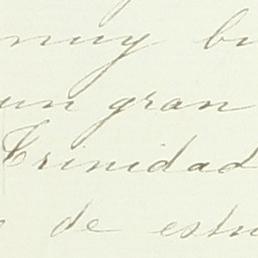 muy bu
un gran
Trinidad
de estu